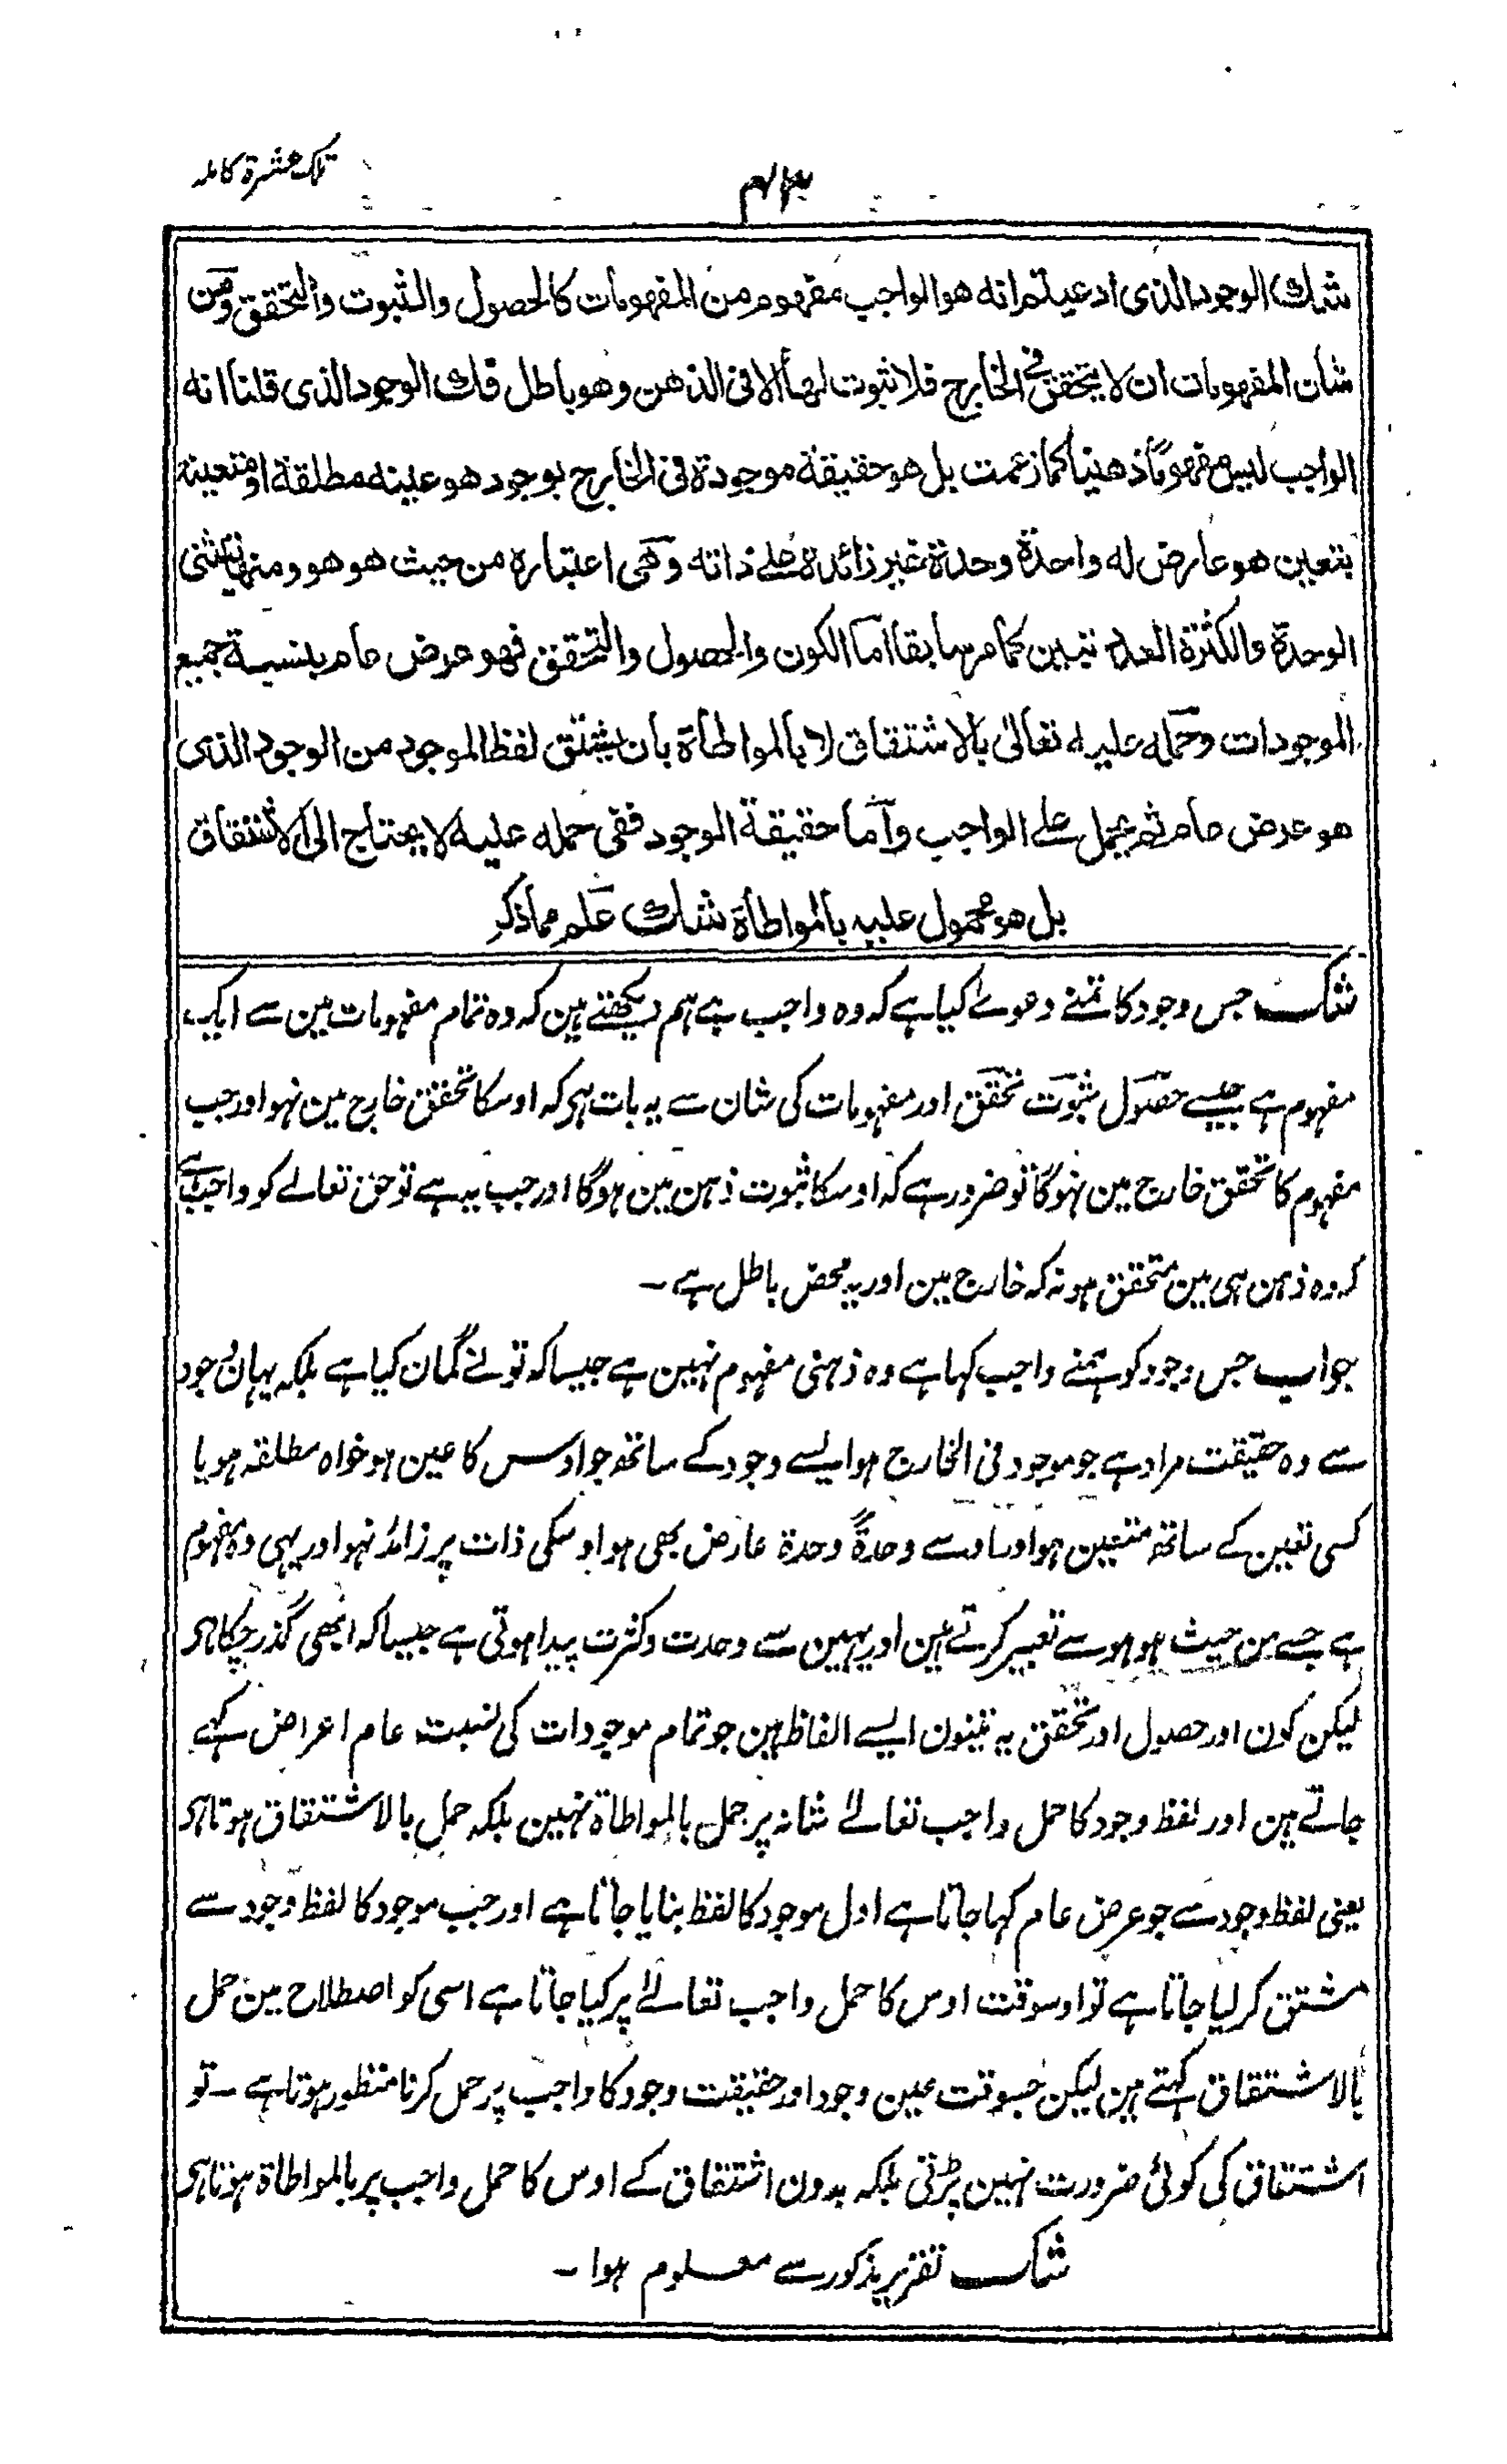 تلک عشرۃ کاملہ
شك الوجود الذى ادعيتم انه هو الواجب مفهوم من المفهومات كالحصول والثبوت والتحقق ومن
شأن المفهومات ان لا يتحقق فى الخارج فلا ثبوت لها الا فى الذهن وهو باطل فك الوجود الذى قلنا انه
الواجب ليس مفهوماً ذهنيا كما زعمت بل هو حقيقة موجودة فى الخارج بوجود هو عينه مطلقة او متعينة
بتعين هو عارض له واحدة وحدة غير زائدة على ذاته وهى اعتباره من حيث هو هو ومنها ينتشى
الوحدة والكثرة كما مر سابقا اما الكون والحصول والتحقق فهو عرض عام بنسبة جميع
الموجودات وحمله عليه تعالى بالاشتقاق لا بالمواطأة بان يشتق لفظ الموجود من الوجود الذى
هو عرض عام ثم يحمل على الواجب وآما حقيقة الوجود ففى حمله عليه لا يحتاج الى الاشتقاق
بل هو محمول عليه بالمواطأة شك علم مما ذكر
شک جس وجود کا تمنے دعوے کیا ہے کہ وہ واجب ہے ہم دیکھتے ہین کہ وہ تمام مفہومات مین سے ایک
مفہوم ہے جیسے حصول ثبوت تحقق اور مفہومات کی شان سے یہ بات ہی کہ اوسکا تحقق خارج مین نہو اور جب
مفہوم کا تحقق خارج مین نہوگا تو ضرور ہے کہ اوسکا ثبوت ذہن مین ہوگا اور جب یہ ہے تو حق تعالے کو واجب ہے
کہ وہ ذہن ہی مین متحقق ہو نہ کہ خارج مین اور یہ محض باطل ہے ۔
جواب جس وجود کو ہمنے واجب کہا ہے وہ ذہنی مفہوم نہین ہے جیسا کہ تو نے گمان کیا ہے بلکہ یہان وجود
سے وہ حقیقت مراد ہے جو موجود فی الخارج ہو ایسے وجود کے ساتھ جو اوس کا عین ہو خواہ مطلقہ ہو یا
کسی تعین کے ساتھ متعین ہو اور اوسے وحدۃً وحدۃ عارض بھی ہو اوسکی ذات پر زائد نہو اور یہی وہ مفہوم
ہے جسے من حیث ہو ہو سے تعبیر کرتے ہین اور یہین سے وحدت و کثرت پیدا ہوتی ہے جیسا کہ ابھی گذر چکا ہی
لیکن کون اور حصول اور تحقق یہ تینون ایسے الفاظ ہین جو تمام موجودات کی نسبت عام اعراض کہے
جاتے ہین اور لفظ وجود کا حمل واجب تعالےٰ شانہ پر حمل بالمواطاۃ نہین بلکہ حمل بالاشتقاق ہوتا ہی
یعنی لفظ وجود سے جو عرض عام کہا جاتا ہے اول موجود کا لفظ بنایا جاتا ہے اور جب موجود کا لفظ وجود سے
مشتق کر لیا جاتا ہے تو اوسوقت اوس کا حمل واجب تعالےٰ پر کیا جاتا ہے اسی کو اصطلاح مین حمل
بالاشتقاق کہتے ہین لیکن جسوقت عین وجود اور حقیقت وجود کا واجب پر حمل کرنا منظور ہوتا ہے ۔ تو
اشتقاق کی کوئی ضرورت نہین پڑتی بلکہ بدون اشتقاق کے اوس کا حمل واجب پر بالمواطاۃ ہوتا ہی
شک تقریر مذکور سے معلوم ہوا ۔